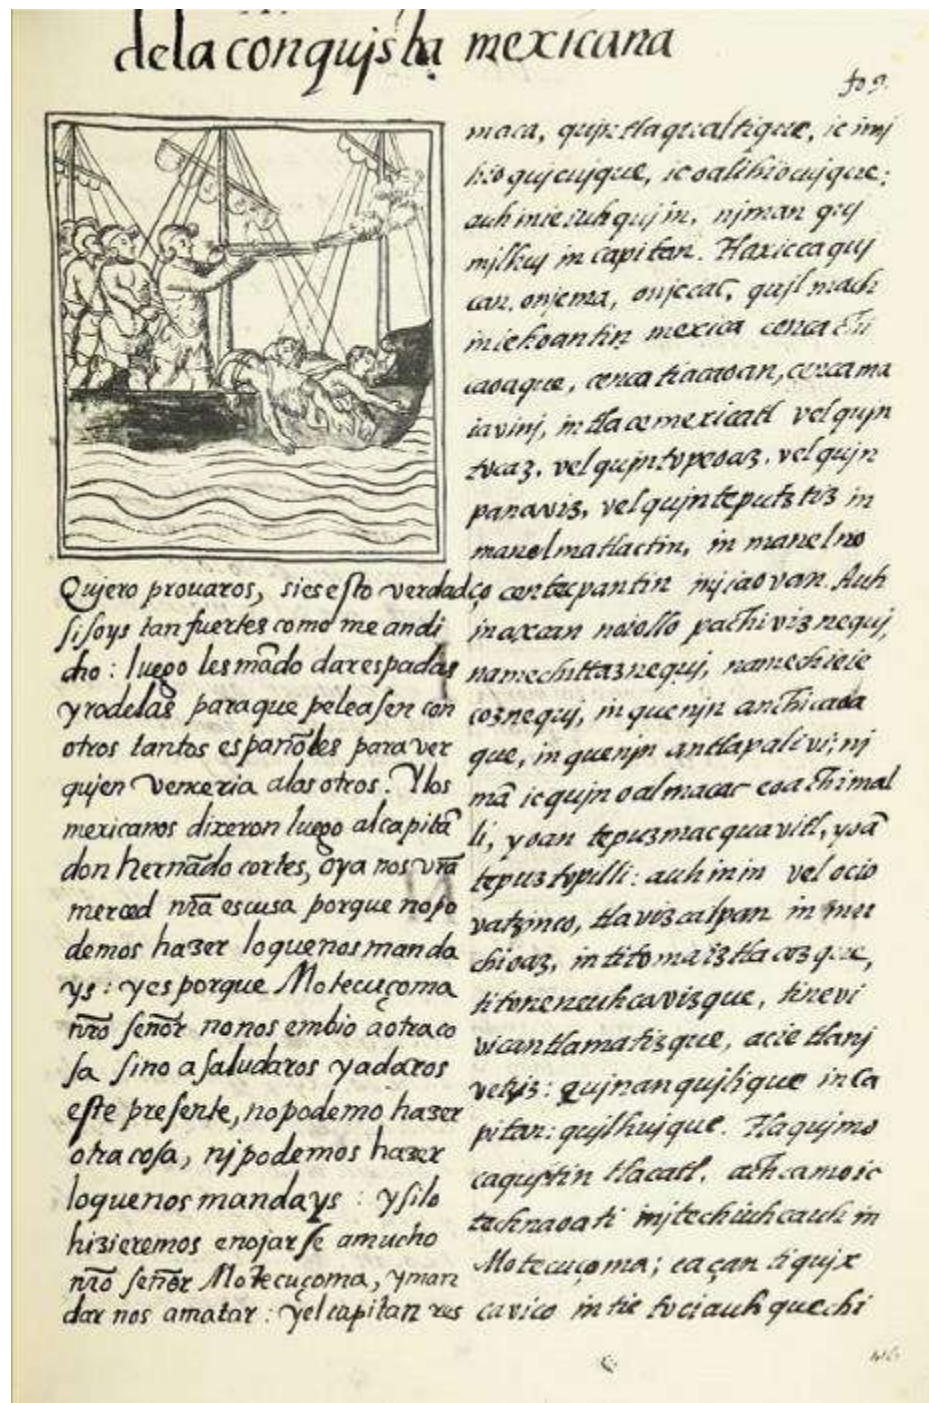 dela conqujsta mexicana
fo 9.
Qujero prouaros, sies esto verdad
si soys tan fuertes como me an di
cho: luego les mādo dar espadas
y rodelas para que peleasen con
otros tantos españoles para ver
qujen venceria alos otros. Y los
mexicanos dixeron luego al capitā
don hernādo cortes, oya nos vr̄a
merced nr̄a escusa porque no po
demos hazer lo que nos manda
ys: y es porque Motecuçoma
nr̄o señor no nos embio a otra co
sa sino a saludaros y a daros
este presente, no podemo hazer
otra cosa, nj podemos hazer
lo que nos mandays: y si lo
hizieremos enojarse a mucho
nr̄o señor Motecuçoma, y man
dar nos a matar: y el capitan res
maca, qujntlaqualtique, ic imj
hio qujcujque, ic oalihiocujque:
auh in ie iuhquj in, njman quj
milhuj in capitan. Tlaxiccaquj
can, onjcma, onjccac, qujl mach
iniehoantin mexica cenca chi
caoaque, cenca tiacaoan, cenca ma
iavinj, intla ce mexicatl vel qujn
tocaz, vel qujntopeoaz, vel qujn
panaviz, vel qujnteputztiz in
manel matlactin, in manel no
ço centecpantin njiaovan. Auh
in axcan noiollo pachiviz nequj,
namechittaznequj, namechieie
coznequj, in quenjn anchicaoa
que, in quenjn antlapalivi; nj
mā ic qujnoalmacac eoachimal
li, yoan tepuzmacquavitl, yoā
tepuztopilli: auh in in vel ocio
vatzinco, tlavizcalpan in mu
chioaz, in titomaiztlacozque,
titoneneuhcavizque, tinevi
vicantlamatizque, ac ie tlanj
vetziz: qujnanqujlique in ca
pitan: qujlhujque. Tlaqujmo
caqujtin tlacatl, achcamo ic
technaoati injtechiuhcauh in
Motecuçoma; ca çan tiquix
cavico in tictociauhquechi